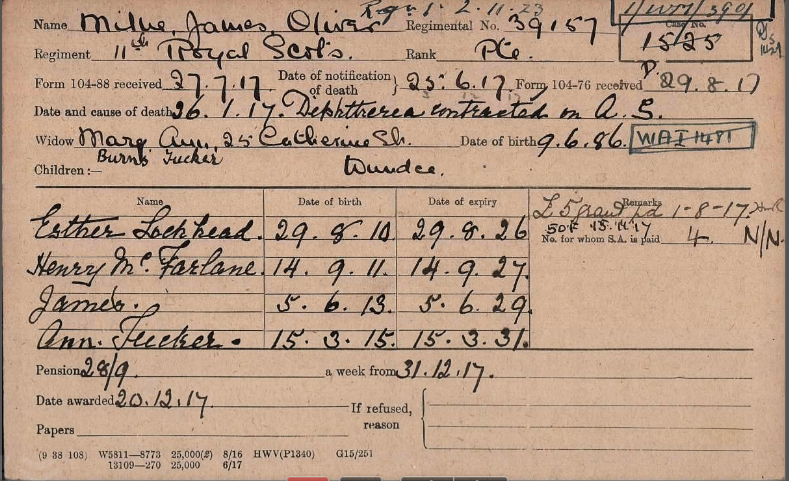 Name Milne, James Oliver Regimental No. 39157
Regiment 11th Royal Scots. Rank Pte. Case No. 15/25
Form 104-88 received 27.7.17 Date of notification of death } 25.6.17. Form 104-76 received 29.8.17
Date and cause of death 26.1.17. Diphtherea contracted on A.S.
Widow Mary Ann, 25 Catherine St. Date of birth 9.6.86. WAI 1481
Burns Tucker Dundee.
Children:—
Name Date of birth Date of expiry Remarks
£5 grant pd 1-8-17
Esther Lockhead. 29.8.10. 29.8.26
No. for whom S.A. is paid 4. N/N.
Henry Mc. Farlane. 14.9.11. 14.9.27.
James. 5.6.13. 5.6.29.
Ann. Tucker. 15.3.15. 15.3.31.
Pension 28/9. a week from 31.12.17.
Date awarded 20.12.17. If refused, reason
Papers
(9 38 108) W5811—8773 25,000(2) 8/16 HWV(P1340) G15/251
13109—270 25,000 6/17